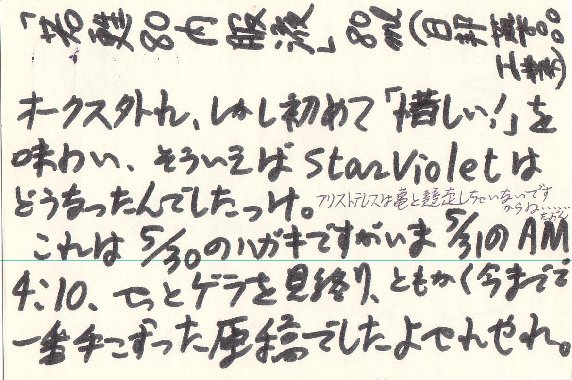 「若甦80内服液」80ml(日邦薬品
工業)。
オークス外れ、しかし初めて「惜しい!」を
味わい、そういえばStarVioletは
どうなったんでしたっけ。アリストテレスは亀と競走しちゃいないです
からね……たぶん
これは5/30のハガキですがいま5/31のAM
4:10、やっとゲラを見終り、ともかく今までで
一番手こずった原稿でしたよやれやれ。